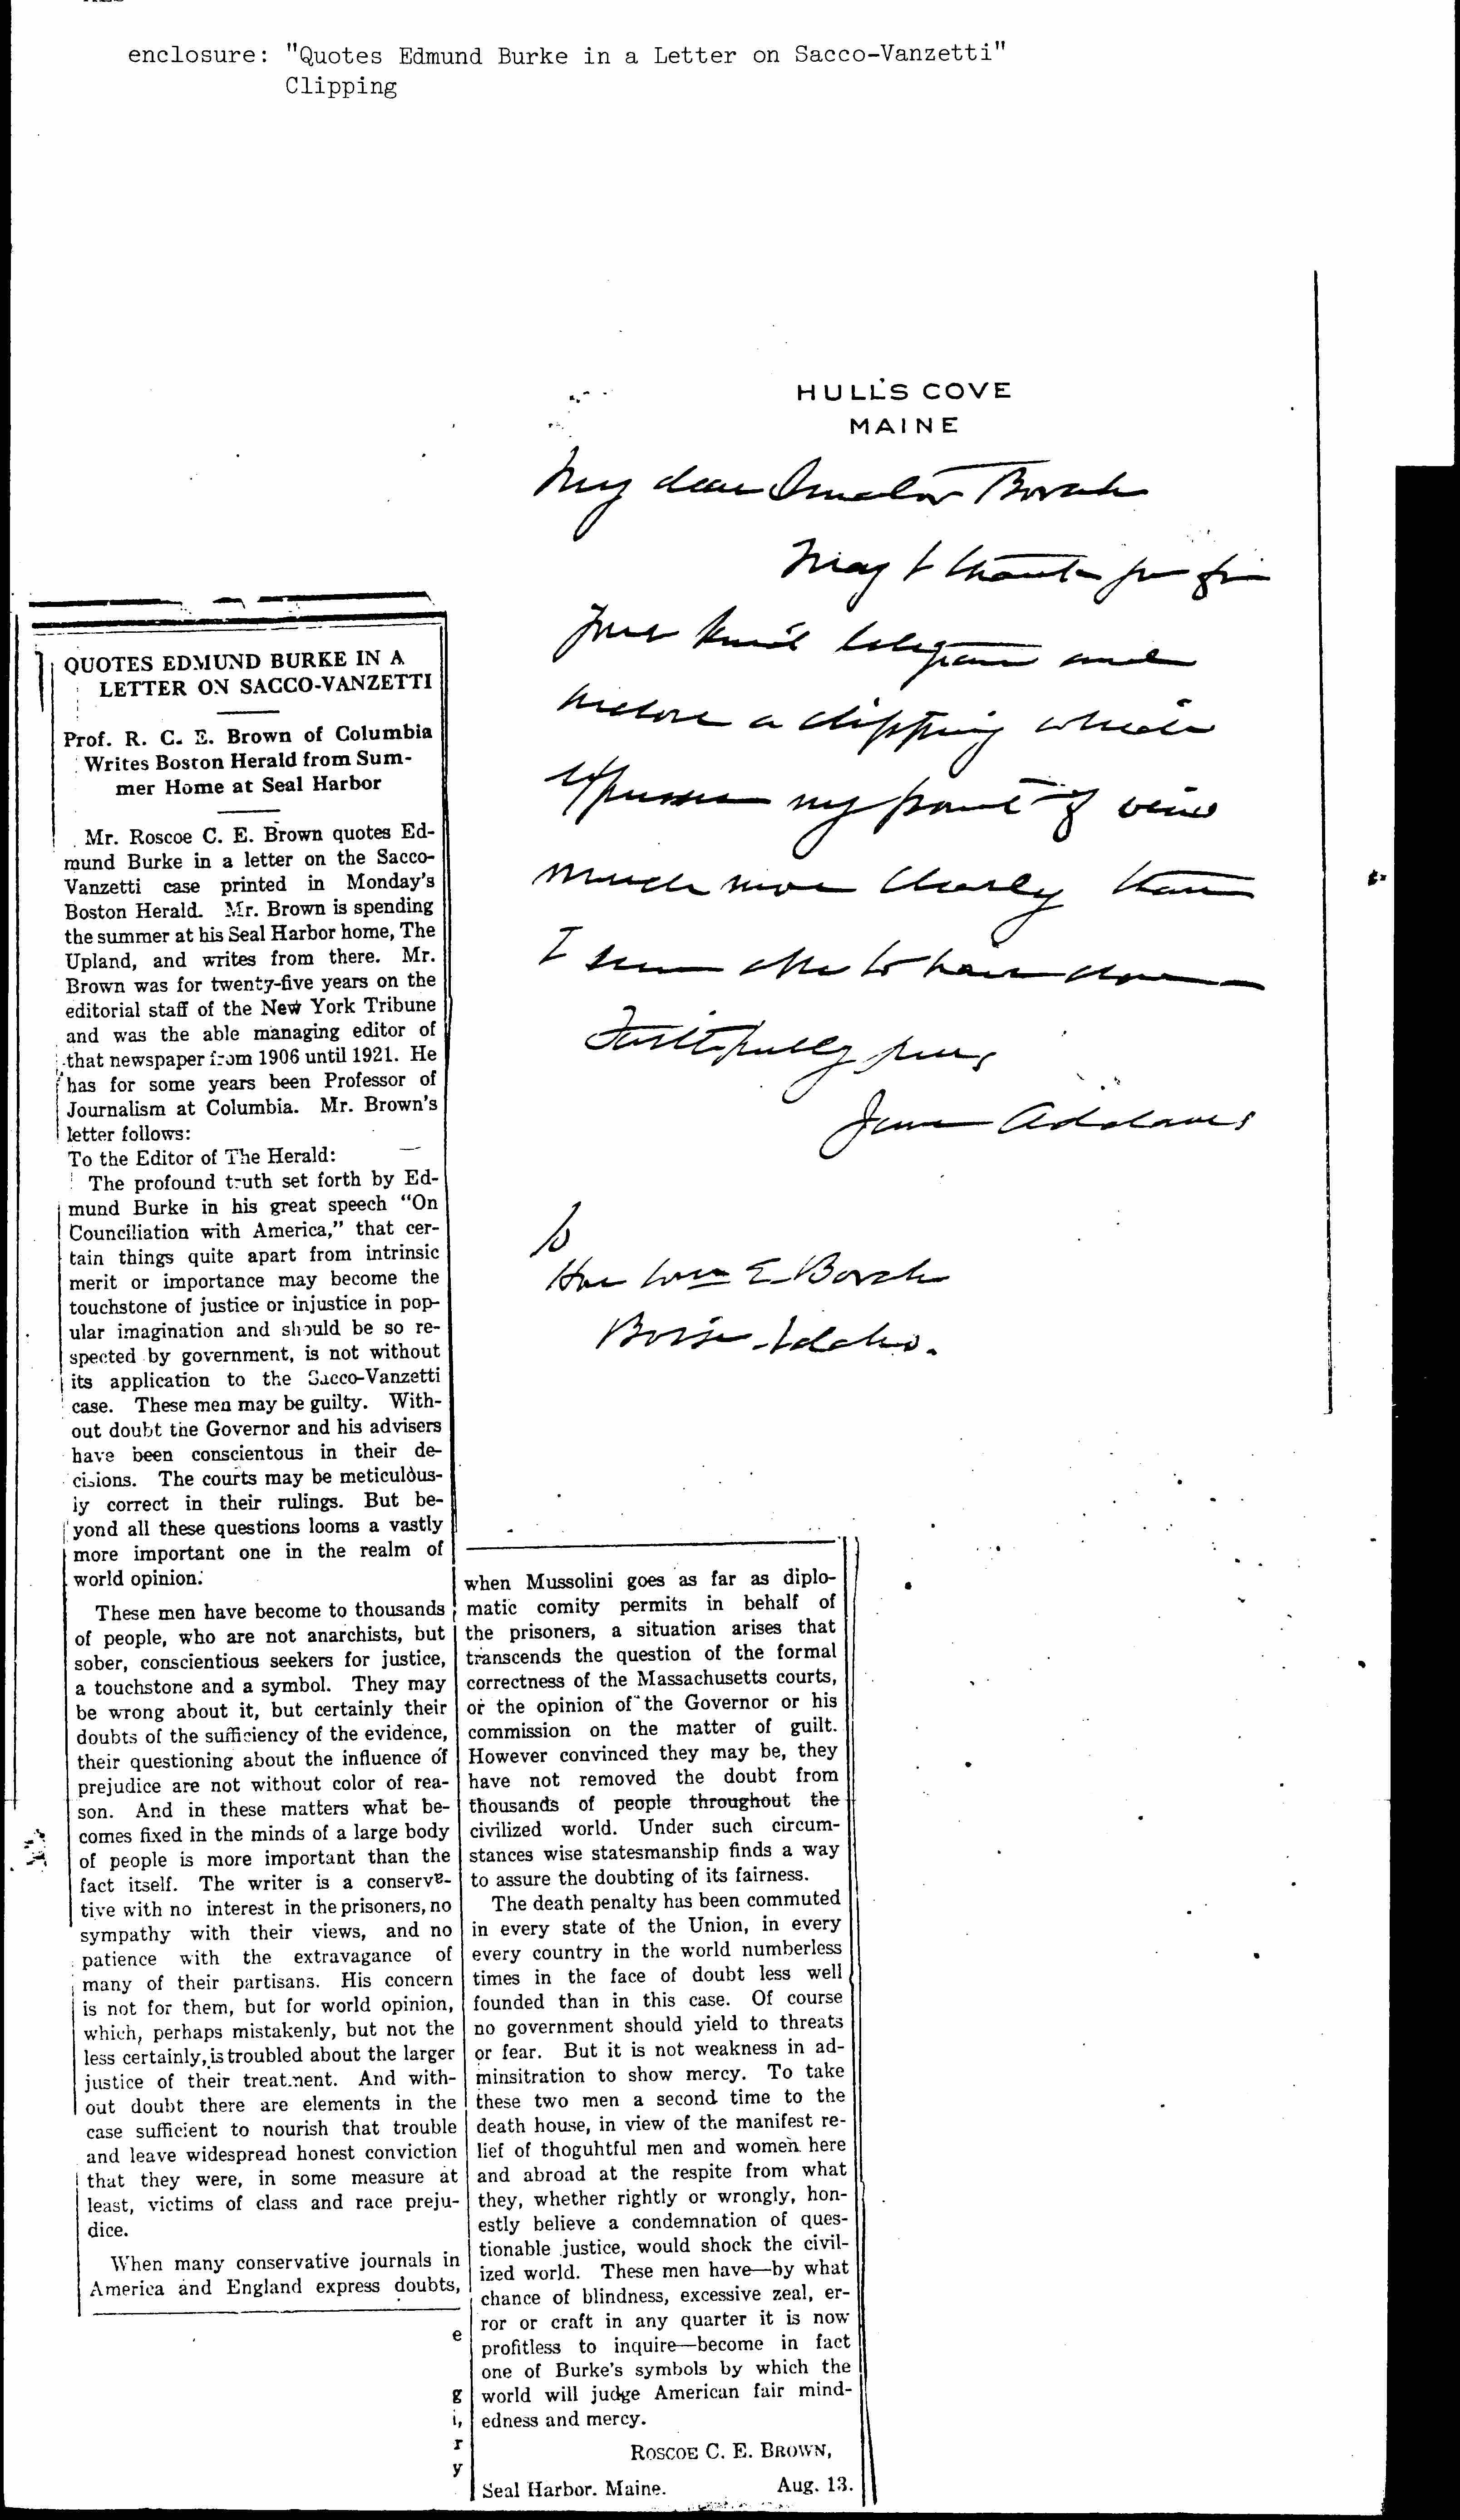 enclosure: "Quotes Edmund Burke in a Letter on Sacco-Vanzetti"
Clipping
HULL'S COVE
MAINE
My dear Senator Borah
May I thank you for
your kind telegram and
inclose a clipping which
expresses my point of view
much more clearly than
I seem able to have done
Faithfully yours
Jane Addams
To
Hon Wm E Borah
Boise Idaho.
QUOTES EDMUND BURKE IN A
LETTER ON SACCO-VANZETTI
Prof. R. C. E. Brown of Columbia
Writes Boston Herald from Sum-
mer Home at Seal Harbor
Mr. Roscoe C. E. Brown quotes Ed-
mund Burke in a letter on the Sacco-
Vanzetti case printed in Monday's
Boston Herald. Mr. Brown is spending
the summer at his Seal Harbor home, The
Upland, and writes from there. Mr.
Brown was for twenty-five years on the
editorial staff of the New York Tribune
and was the able managing editor of
that newspaper from 1906 until 1921. He
has for some years been Professor of
Journalism at Columbia. Mr. Brown's
letter follows:
To the Editor of The Herald:
The profound truth set forth by Ed-
mund Burke in his great speech "On
Counciliation with America," that cer-
tain things quite apart from intrinsic
merit or importance may become the
touchstone of justice or injustice in pop-
ular imagination and should be so re-
spected by government, is not without
its application to the Sacco-Vanzetti
case. These men may be guilty. With-
out doubt the Governor and his advisers
have been conscientous in their de-
cisions. The courts may be meticulous-
ly correct in their rulings. But be-
yond all these questions looms a vastly
more important one in the realm of
world opinion.
These men have become to thousands
of people, who are not anarchists, but
sober, conscientious seekers for justice,
a touchstone and a symbol. They may
be wrong about it, but certainly their
doubts of the sufficiency of the evidence,
their questioning about the influence of
prejudice are not without color of rea-
son. And in these matters what be-
comes fixed in the minds of a large body
of people is more important than the
fact itself. The writer is a conserva-
tive with no interest in the prisoners, no
sympathy with their views, and no
patience with the extravagance of
many of their partisans. His concern
is not for them, but for world opinion,
which, perhaps mistakenly, but not the
less certainly, is troubled about the larger
justice of their treatment. And with-
out doubt there are elements in the
case sufficient to nourish that trouble
and leave widespread honest conviction
that they were, in some measure at
least, victims of class and race preju-
dice.
When many conservative journals in
America and England express doubts,
when Mussolini goes as far as diplo-
matic comity permits in behalf of
the prisoners, a situation arises that
transcends the question of the formal
correctness of the Massachusetts courts,
or the opinion of the Governor or his
commission on the matter of guilt.
However convinced they may be, they
have not removed the doubt from
thousands of people throughout the
civilized world. Under such circum-
stances wise statesmanship finds a way
to assure the doubting of its fairness.
The death penalty has been commuted
in every state of the Union, in every
every country in the world numberless
times in the face of doubt less well
founded than in this case. Of course
no government should yield to threats
or fear. But it is not weakness in ad-
minsitration to show mercy. To take
these two men a second time to the
death house, in view of the manifest re-
lief of thoguhtful men and women here
and abroad at the respite from what
they, whether rightly or wrongly, hon-
estly believe a condemnation of ques-
tionable justice, would shock the civil-
ized world. These men have—by what
chance of blindness, excessive zeal, er-
ror or craft in any quarter it is now
profitless to inquire—become in fact
one of Burke's symbols by which the
world will judge American fair mind-
edness and mercy.
ROSCOE C. E. BROWN,
Seal Harbor. Maine. Aug. 13.
e
g
i,
r
y